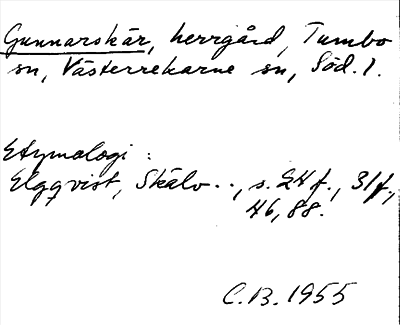 Gunnarskär, herrgård, Tumbo
sn, Västerrekarne sn, Söd. l.
Etymologi :
Elgqvist, Skälv . . , s. 24 f., 31 f.,
46, 88.
C.B. 1955